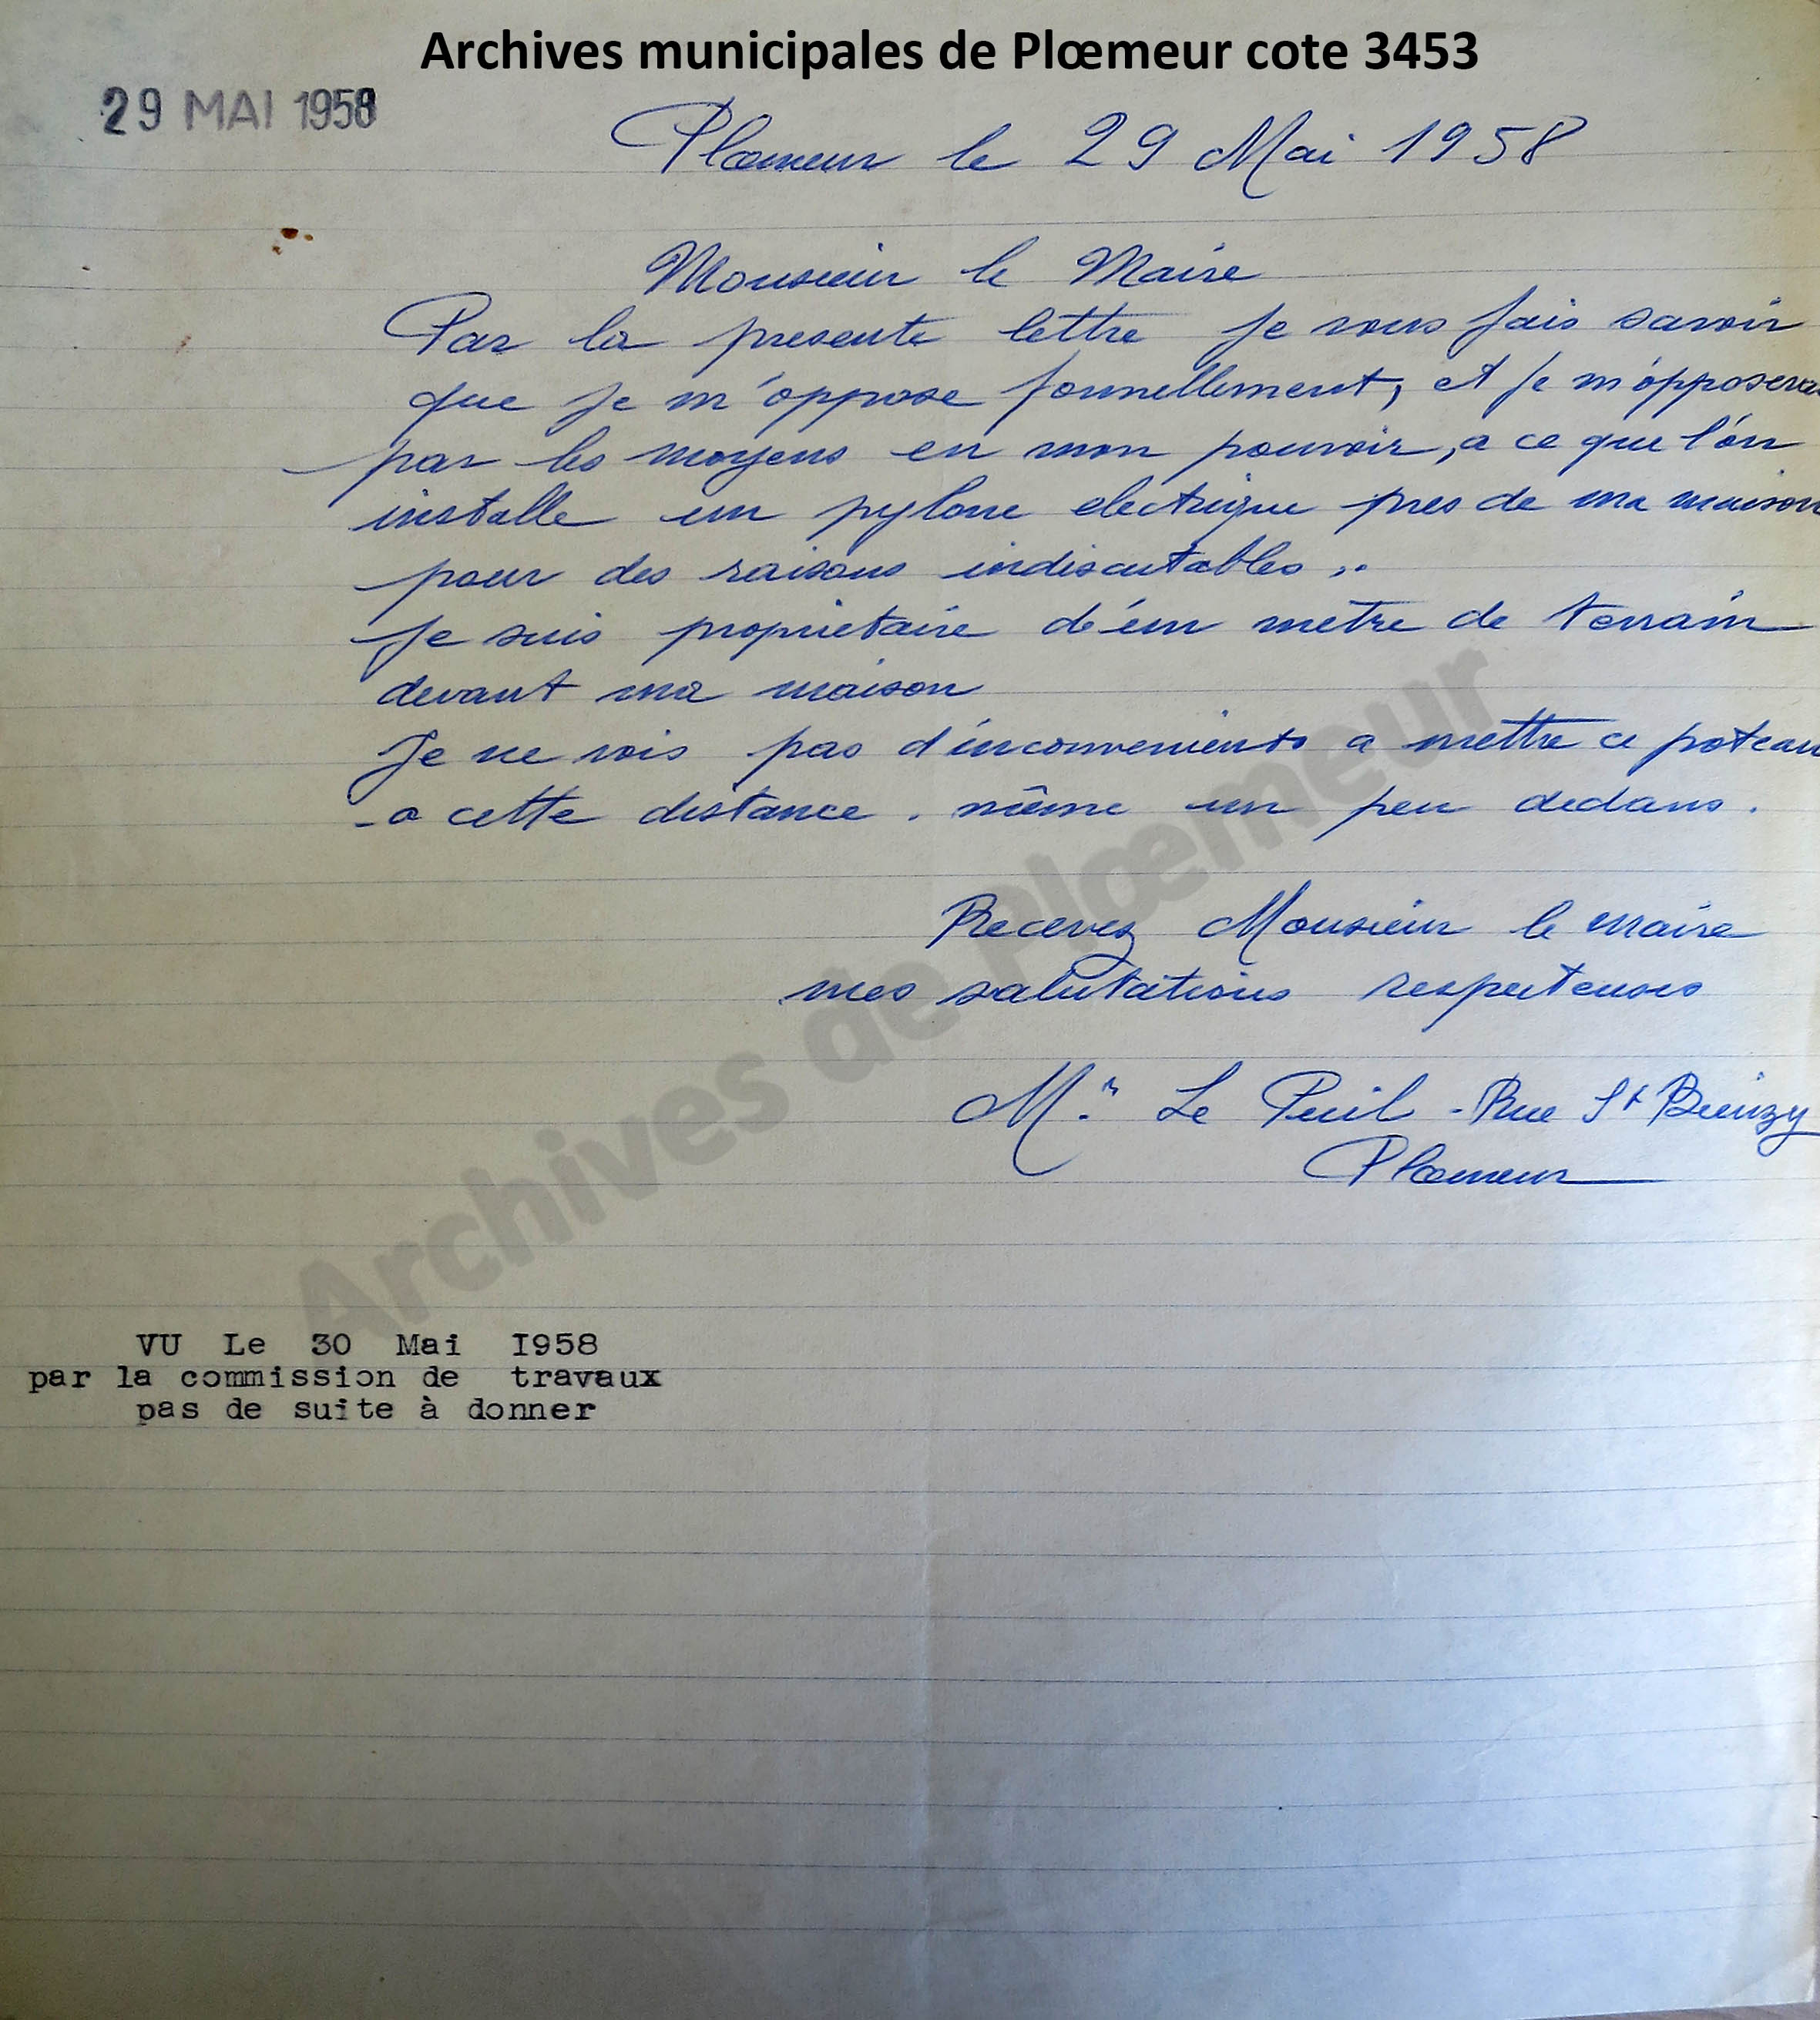 Archives municipales de Plœmeur cote 3453
29 MAI 1958
Plœmeur le 29 Mai 1958
Monsieur le Maire
Par la presente lettre je vous fais savoir
que je m'oppose formellement, et je m'opposerai
par les moyens en mon pouvoir, a ce que l'on
installe un pylone electrique pres de ma maison
pour des raisons indiscutables ..
Je suis proprietaire d'un metre de terrain
devant ma maison
Je ne vois pas d'inconvenients a mettre ce poteau
a cette distance . même un peu dedans .
Recevez Monsieur le maire
mes salutations respectueuses
Mr Le Puil - Rue St Bieuzy
Plœmeur
Archives de Plœmeur
VU Le 30 Mai I958
par la commission de travaux
pas de suite à donner